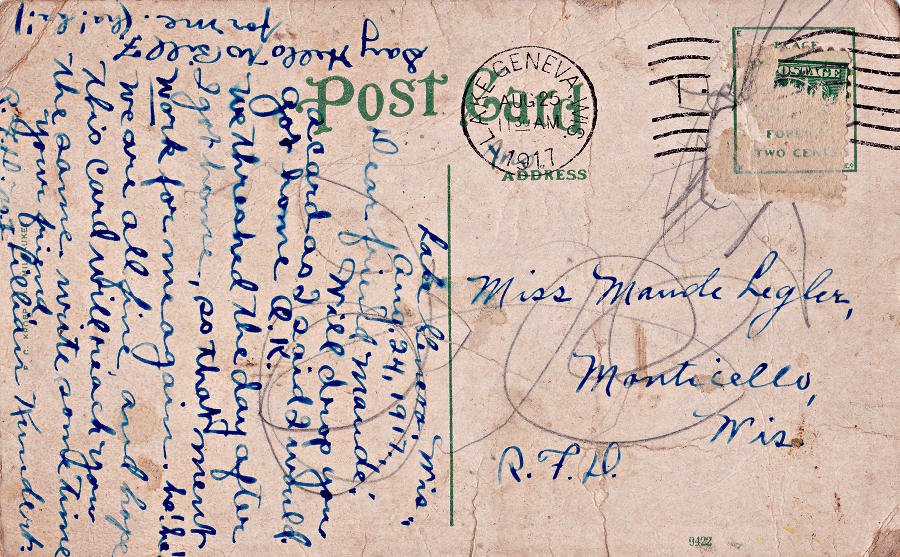 Post Card
ADDRESS
LAKE GENEVA, WIS.
AUG 25
11 30 AM
1917
PLACE
POSTAGE
FOREIGN
TWO CENTS
Miss Maude Legler,
Monticello,
Wis.
R. F. D.
9422
Lake Geneva, Wis,
Aug. 24, 1917,
Dear friend Maude,
Will drop you
a card as I said I would.
got home O.K.
We threshed the day after
I got home, so that ment
Work for me again. ha! ha!
We are all fine, and hope
This card will reach you
the same. write some time
your friend,
Lillian Kundert.
Say Hello to Bill F
for me. (ha! ha!)